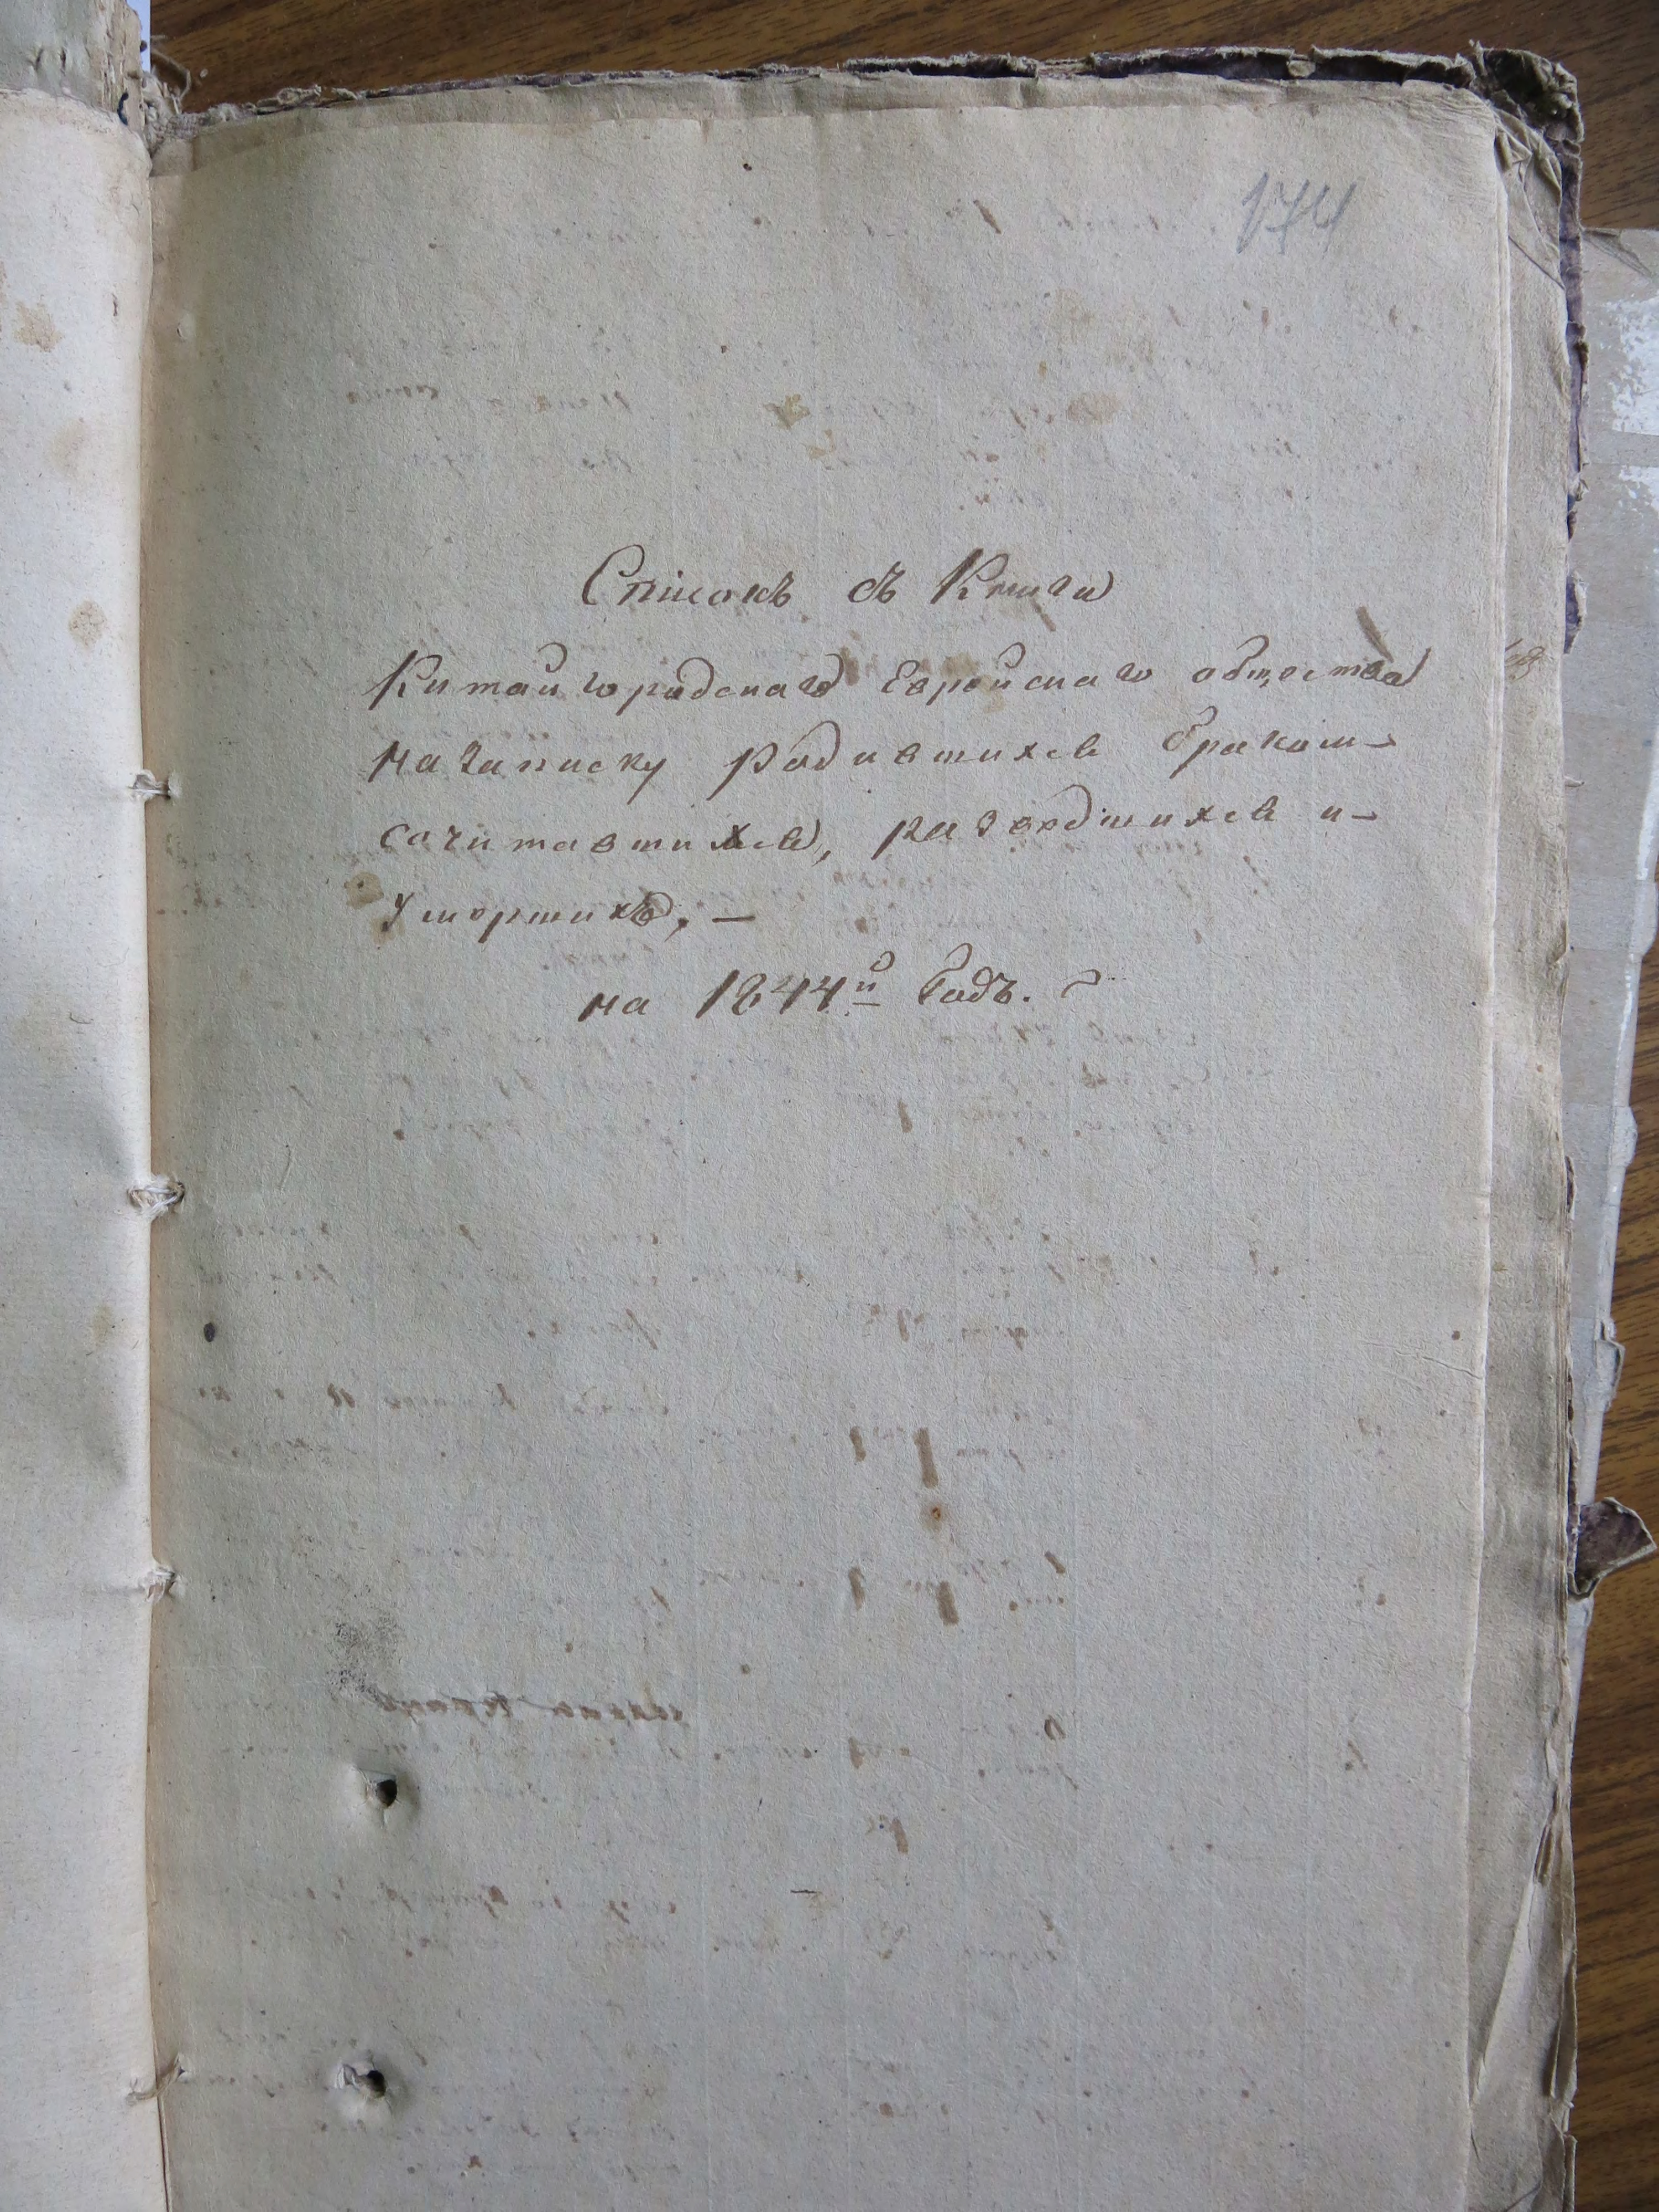 174
Списокъ съ Книги
Китайгородскаго Еврейскаго общества
на записку родившихся бракош-
сочитавшихся, разводшихся и-
Умершихъ, —
на 1844й Годъ. ~